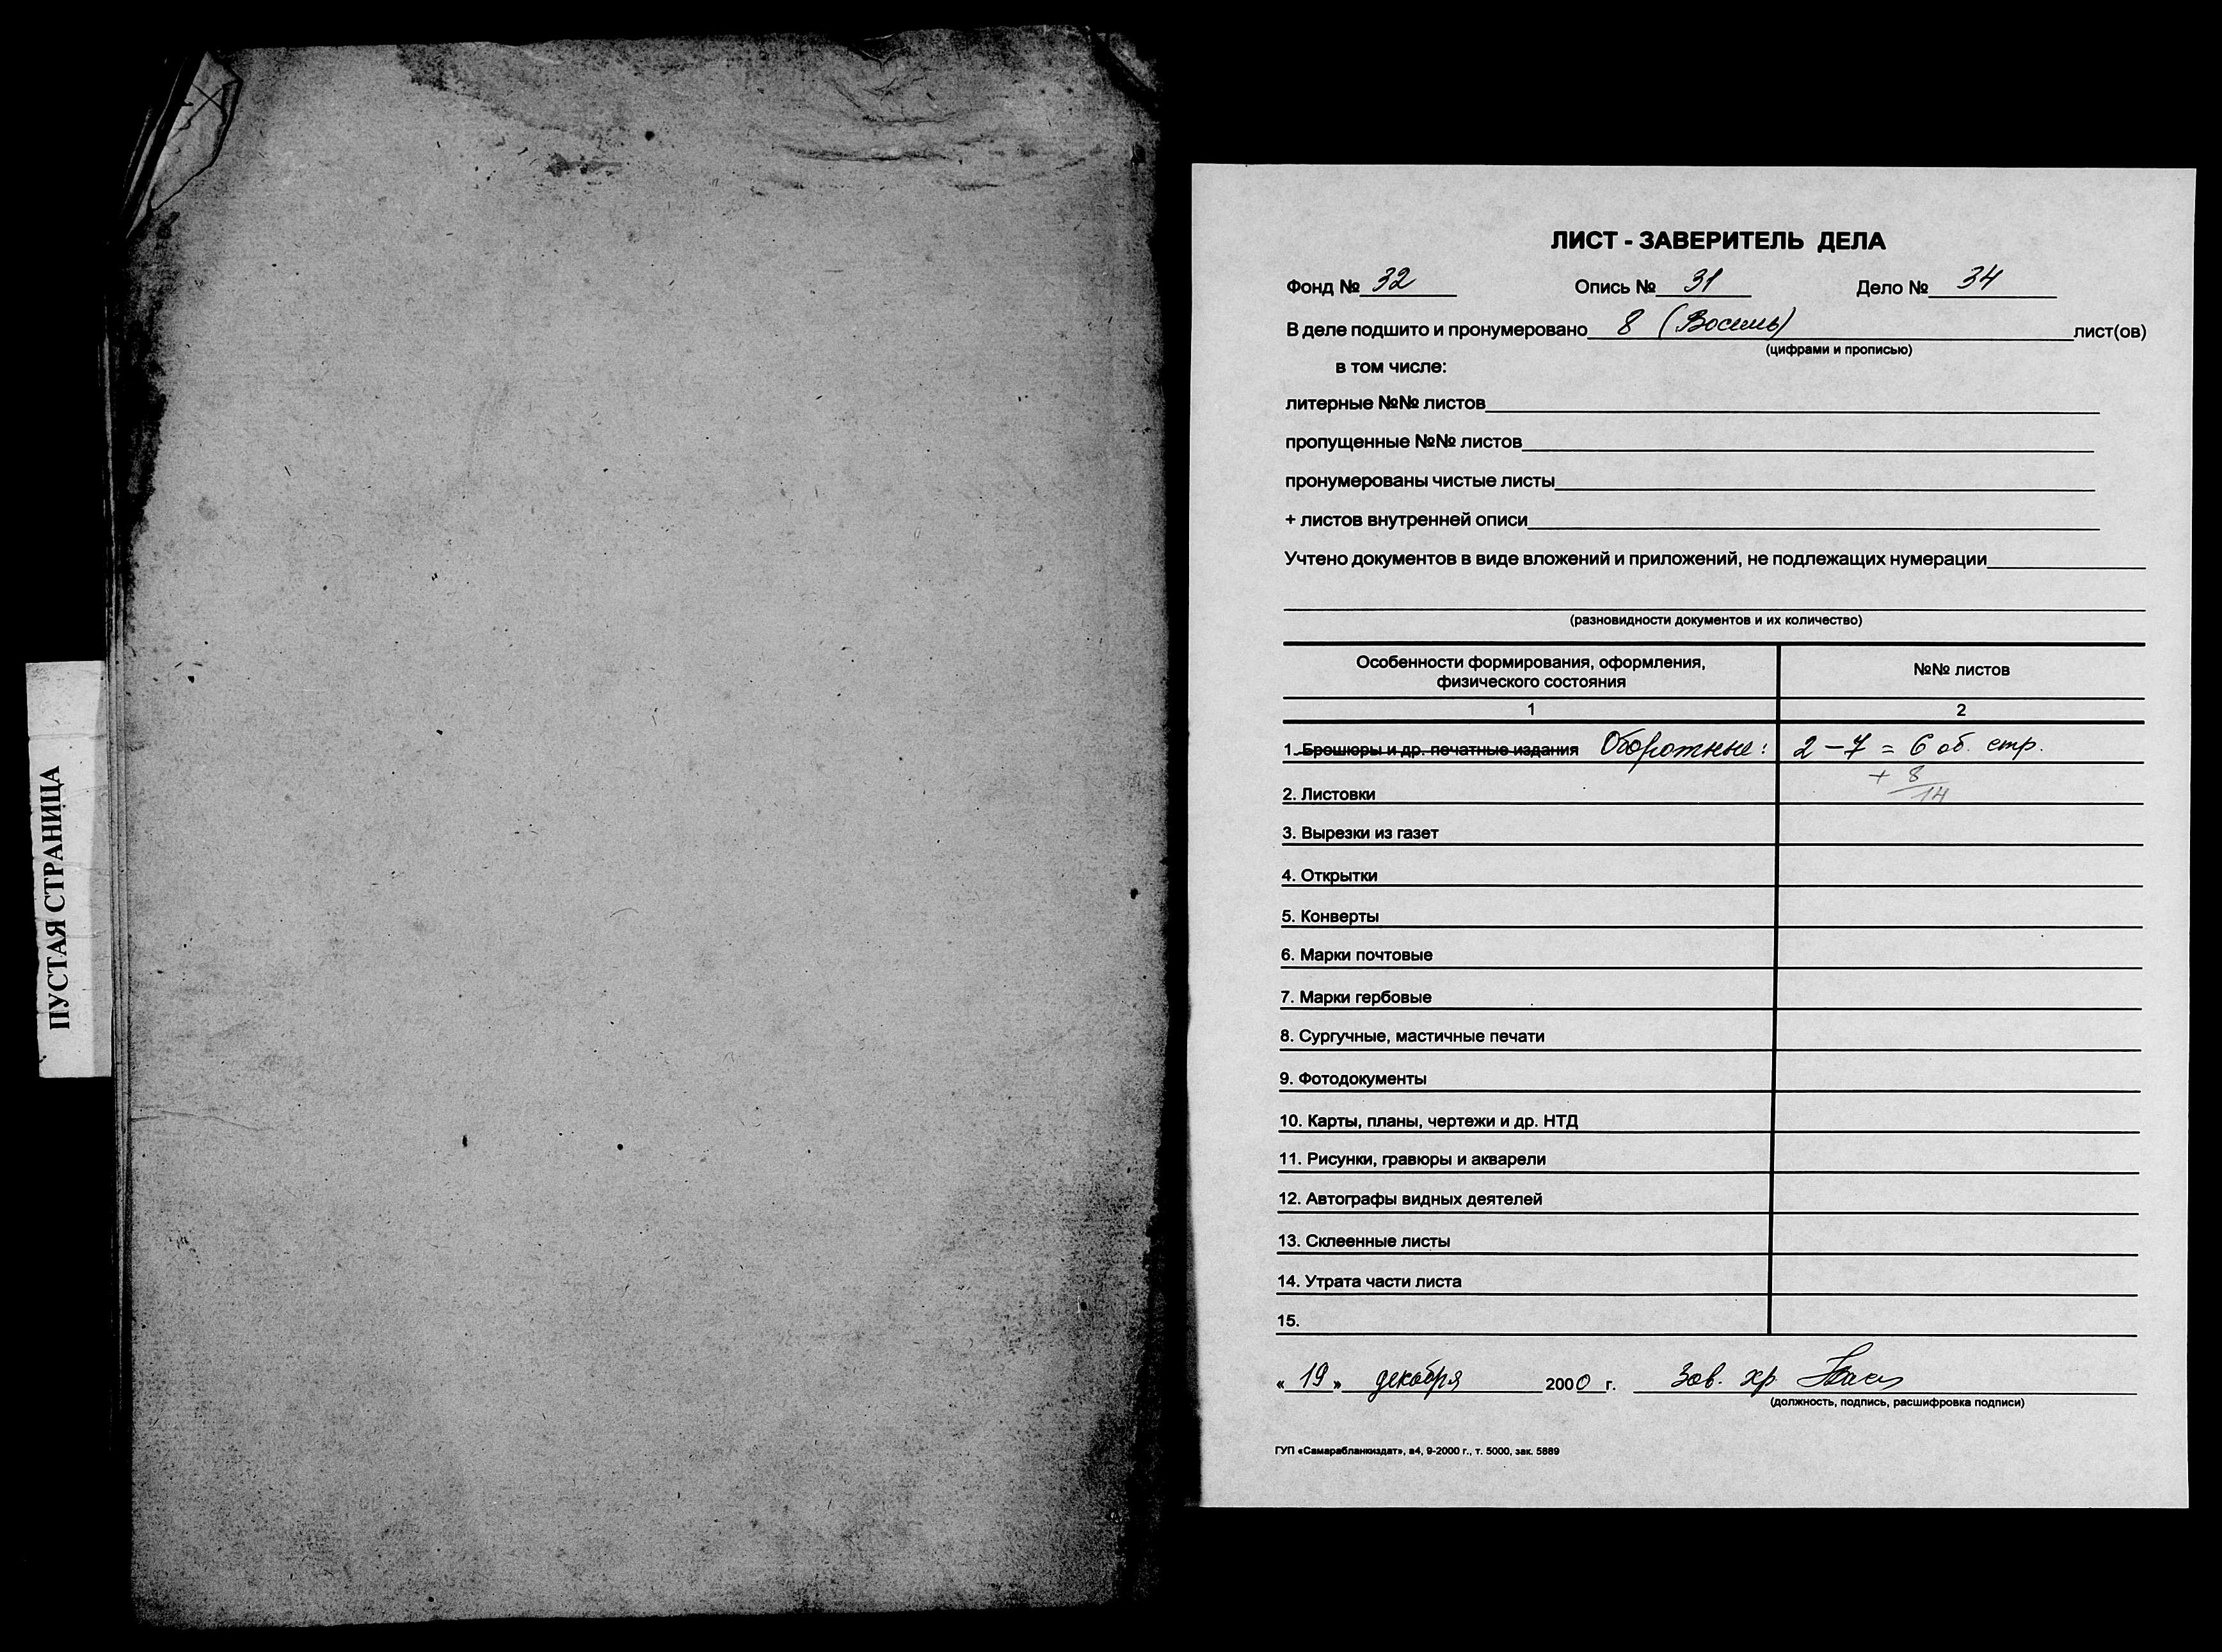 ПУСТАЯ СТРАНИЦА
ЛИСТ - ЗАВЕРИТЕЛЬ ДЕЛА
Фонд № 32 Опись № 31 Дело № 34
В деле подшито и пронумеровано 8 (Восемь) лист(ов)
(цифрами и прописью)
в том числе:
литерные №№ листов
пропущенные №№ листов
пронумерованы чистые листы
+ листов внутренней описи
Учтено документов в виде вложений и приложений, не подлежащих нумерации
(разновидности документов и их количество)
Особенности формирования, оформления, №№ листов
физического состояния
1 2
1. Брошюры и др. печатные издания Оборотные: 2 – 7 = 6 об. стр.
+ 8
2. Листовки 14
3. Вырезки из газет
4. Открытки
5. Конверты
6. Марки почтовые
7. Марки гербовые
8. Сургучные, мастичные печати
9. Фотодокументы
10. Карты, планы, чертежи и др. НТД
11. Рисунки, гравюры и акварели
12. Автографы видных деятелей
13. Склеенные листы
14. Утрата части листа
15.
« 19 » декабря 2000 г. Зав. хр.
(должность, подпись, расшифровка подписи)
ГУП «Самарабланкиздат», а4, 9-2000 г., т. 5000, зак. 5889